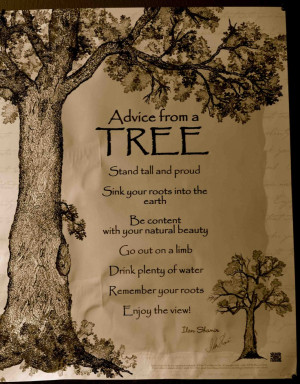 Advice from a
TREE
Stand tall and proud
Sink your roots into the
earth
Be content
with your natural beauty
Go out on a limb
Drink plenty of water
Remember your roots
Enjoy the view!
Ilan Shamir